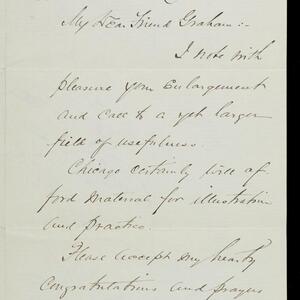 My Dear Friend Graham:-
I note with
pleasure your enlargement
and call to a yet larger
field of usefulness.
Chicago certainly will af
ford material for illustration
and practice.
Please accept my hearty
congratulations and prayers